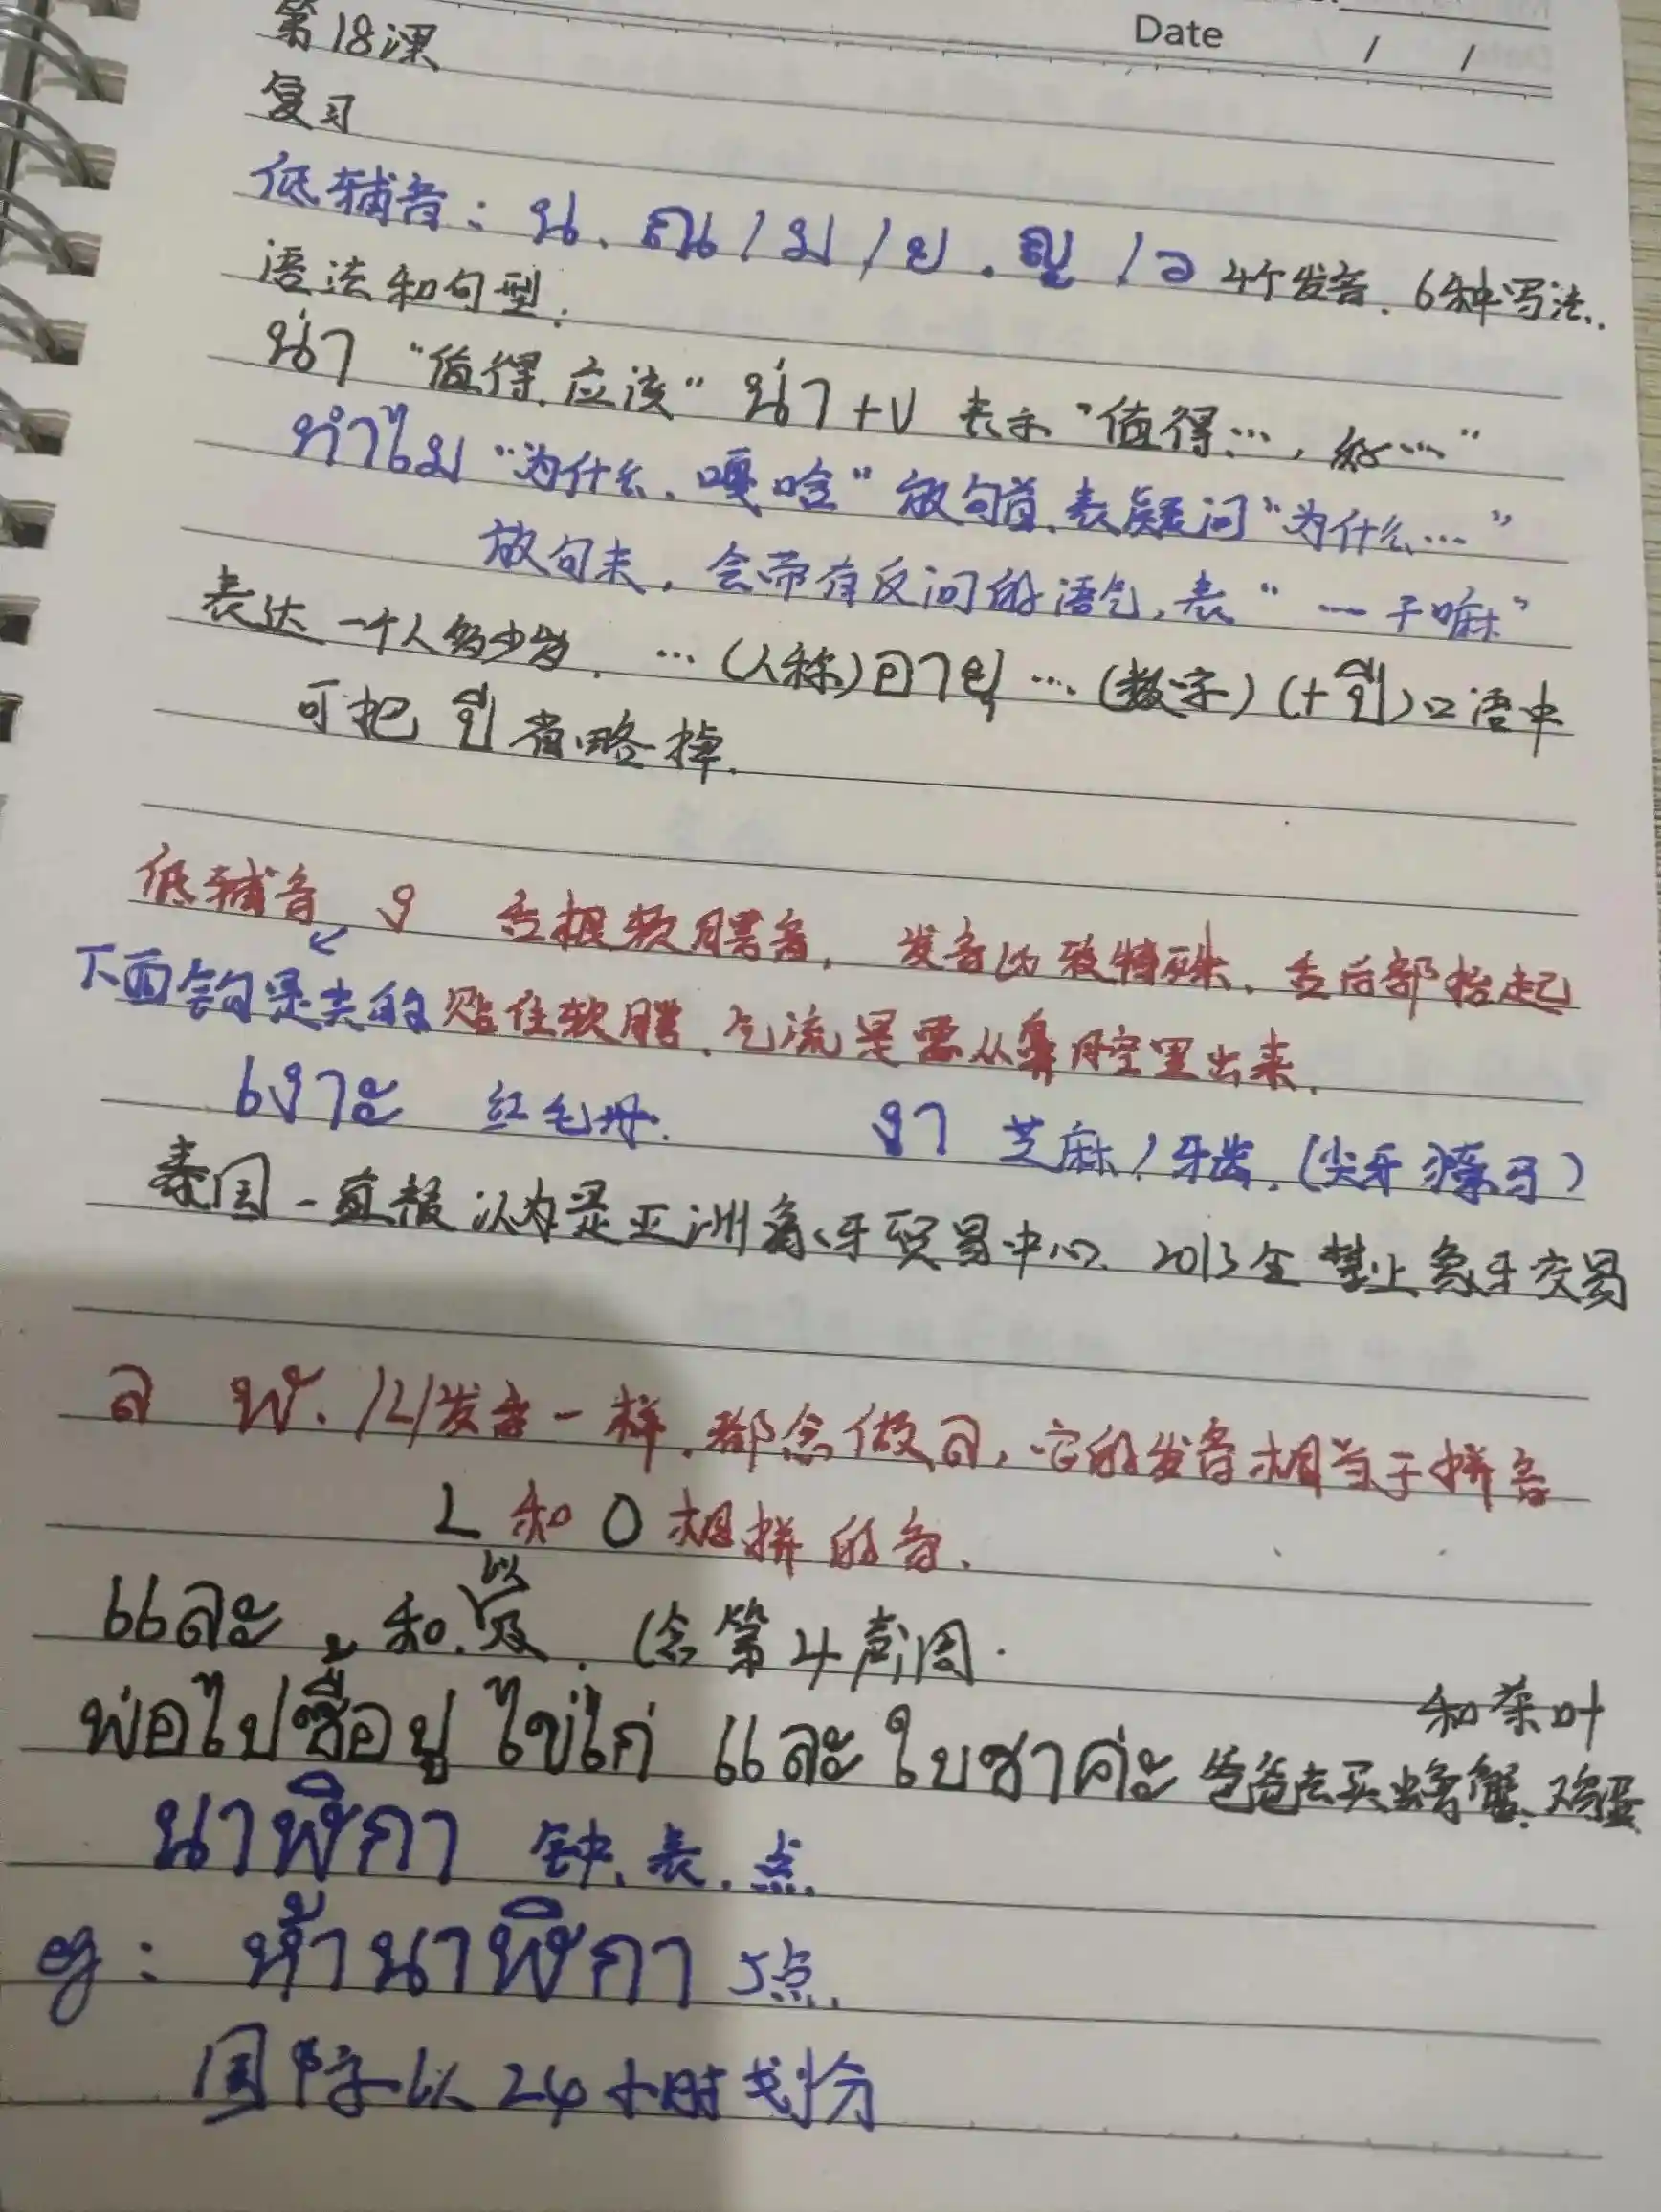 Date / /
第18课
复习
低辅音: น. ณ / ม / ย. ญ / ว 4个发音. 6种写法.
语法和句型:
น่า "值得.应该" น่า+V 表示"值得…, 好…"
ทำไม "为什么. 嘎哈" 放句首.表疑问"为什么…"
放句末, 会带有反问的语气,表"…干嘛"
表达一个人多少岁. …(人称)อายุ…(数字)(+ปี)口语中
可把 ปี 省略掉.
低辅音 ง 舌根软腭音, 发音比较特殊. 舌后部抬起
下面会勾是尖的 贴住软腭. 气流是需从鼻腔里出来.
เงาะ 红毛丹. งา 芝麻/牙齿.(尖牙獠牙)
泰国一直被认为是亚洲象牙贸易中心. 2013全禁止象牙交易
ล ฬ. /L/发音一样.都念做ล,它的发音相当于拼音
L 和 O 相拼的音.
และ. 和.以及. (念第4声调.
พ่อไปซื้อปู ไข่ไก่ และ ใบชาค่ะ 爸爸去买螃蟹.鸡蛋
和茶叶
นาฬิกา 钟.表.点.
eg: ห้านาฬิกา 5点.
国际以24小时划分